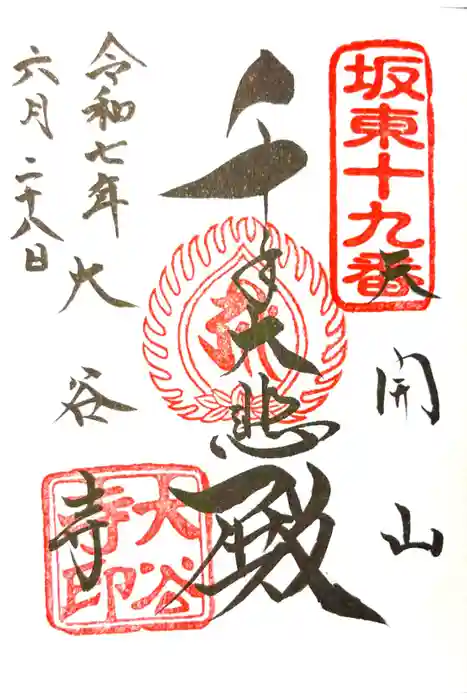 坂東十九番
天開山
千手大悲殿
大谷寺
大谷寺印
令和七年
六月二十八日